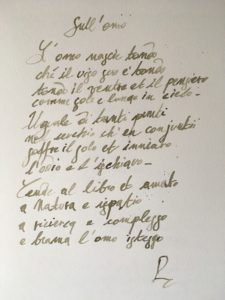 Sull'omo
L'omo nasce tondo
chi il viso suo è tondo
tondo il ventre et il pensiero
comme sole e luna in cielo.
Uguale di tanti punti
nel cerchio ch'en congiunti
soffre il solo et inniato
l'odio e l'
Tende al libro et amato
a Natura e spazio
a ricerca e complesso
e brama l'omo istesso